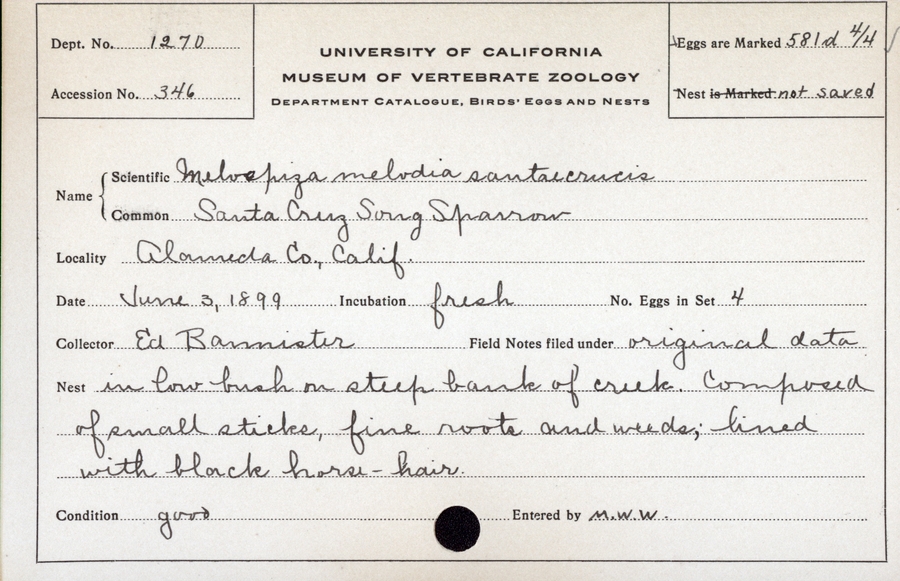 Dept. No. 1270
Accession No. 346
UNIVERSITY OF CALIFORNIA
MUSEUM OF VERTEBRATE ZOOLOGY
DEPARTMENT CATALOGUE, BIRDS' EGGS AND NESTS
Eggs are Marked 581d 4/4
Nest is Marked not saved
Name
Scientific Melospiza melodia santaecrucis
Common Santa Cruz Song Sparrow
Locality Alameda Co., Calif.
Date June 3, 1899 Incubation fresh No. Eggs in Set 4
Collector Ed Bannister Field Notes filed under original data
Nest in low bush on steep bank of creek. Composed
of small sticks, fine roots and weeds; lined
with black horse-hair.
Condition good Entered by M.W.W.